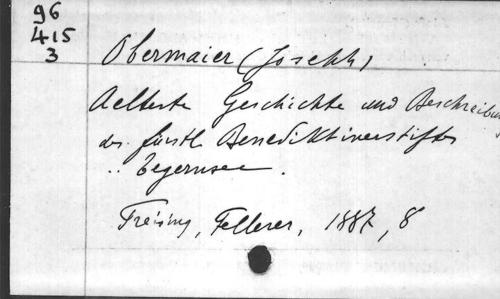 96
415
3
Obermaier (Joseph)
Aelteste Geschichte und Beschreibung
des fürstl Benediktinerstiftes
Tegernsee.
Freising, Fellerer, 1887, 8